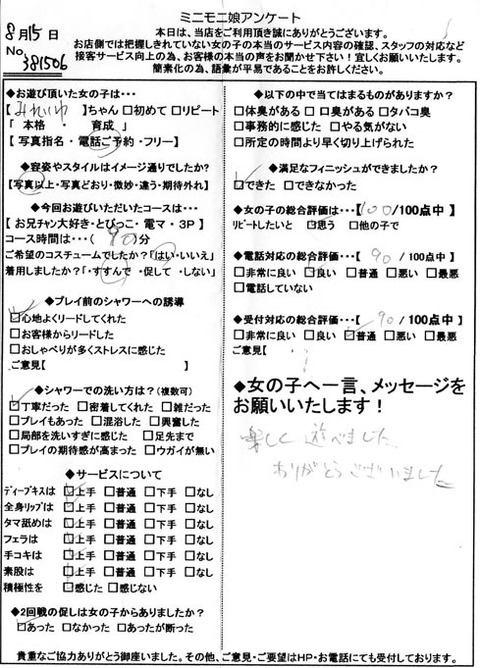 ミニモニ娘アンケート
8月15日
No 381506
本日は、当店をご利用頂き誠にありがとうございます。
お店側では把握しきれていない女の子の本当のサービス内容の確認、スタッフの対応など
接客サービス向上の為、お客様の本当の声をお聞かせ下さい！宜しくお願いいたします。
簡素化の為、語彙が平易であることをお許しください。
◆お遊び頂いた女の子は・・・
【 】ちゃん □初めて □リピート
「 本格 ・ 育成 」
【 写真指名・電話ご予約・フリー】
◆容姿やスタイルはイメージ通りでしたか？
【写真以上・写真どおり・微妙・違う・期待外れ】
◆今回お遊びいただいたコースは・・・
【 お兄チャン大好き・とびっこ・電マ・3P 】
コース時間は・・・( 90 )分
ご希望のコスチュームでしたか？「はい・いいえ」
着用しましたか？「・すすんで ・促して ・しない」
◆プレイ前のシャワーへの誘導
□心地よくリードしてくれた
□お客様からリードした
□おしゃべりが多くストレスに感じた
ご意見【 】
◆シャワーでの洗い方は？（複数可）
□丁寧だった □密着してくれた □雑だった
□プレイもあった □混浴した □興奮した
□局部を洗いすぎに感じた □足先まで
□プレイの期待感が高まった □ウガイが無い
◆サービスについて
ディープキスは □上手 □普通 □下手 □なし
全身リップは □上手 □普通 □下手 □なし
タマ舐めは □上手 □普通 □下手 □なし
フェラは □上手 □普通 □下手 □なし
手コキは □上手 □普通 □下手 □なし
素股は □上手 □普通 □下手 □なし
積極性を □感じた □感じない
◆2回戦の促しは女の子からありましたか？
□あった □なかった □あったが断った
◆以下の中で当てはまるものがありますか？
□体臭がある □口臭がある □タバコ臭
□事務的に感じた □やる気がない
□所定の時間より早く切り上げられた
◆満足なフィニッシュができましたか？
□できた □できなかった
◆女の子の総合評価は・・・【100/100点中】
リピートしたいと □思う □他の子で
◆電話対応の総合評価・・・【 90 /100点中】
□非常に良い □良い □普通 □悪い □最悪
□電話していない
◆受付対応の総合評価・・・【 90 /100点中】
□非常に良い □良い □普通 □悪い □最悪
ご意見【 】
◆女の子へ一言、メッセージを
お願いいたします！
楽しく遊べました
ありがとうございました
貴重なご協力ありがとう御座いました。その他、ご意見・ご要望はHP・お電話にても受付しております。